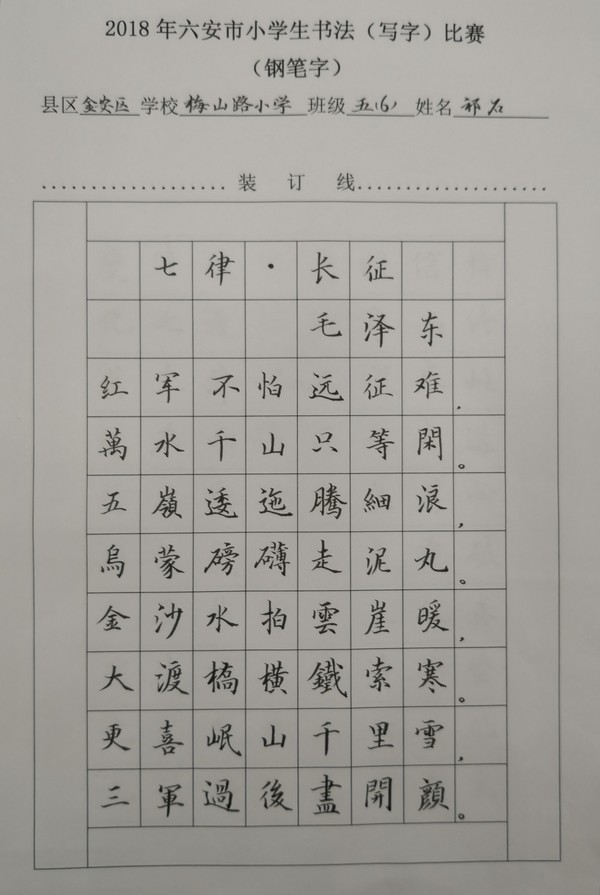 2018年六安市小学生书法（写字）比赛
（钢笔字）
县区金安区学校梅山路小学班级五(6)姓名祁石
装订线
七律·长征
毛泽东
红军不怕远征难，
萬水千山只等閑。
五嶺逶迤騰細浪，
烏蒙磅礴走泥丸。
金沙水拍雲崖暖，
大渡橋橫鐵索寒。
更喜岷山千里雪，
三軍過後盡開顔。